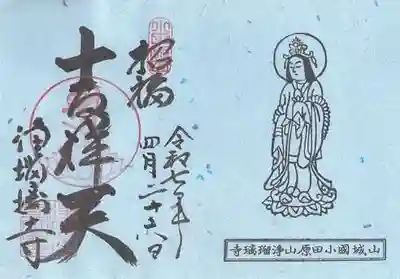 招福
吉祥天
浄瑠璃寺
令和七年
四月二十六日
山城國小田原山淨瑠璃寺